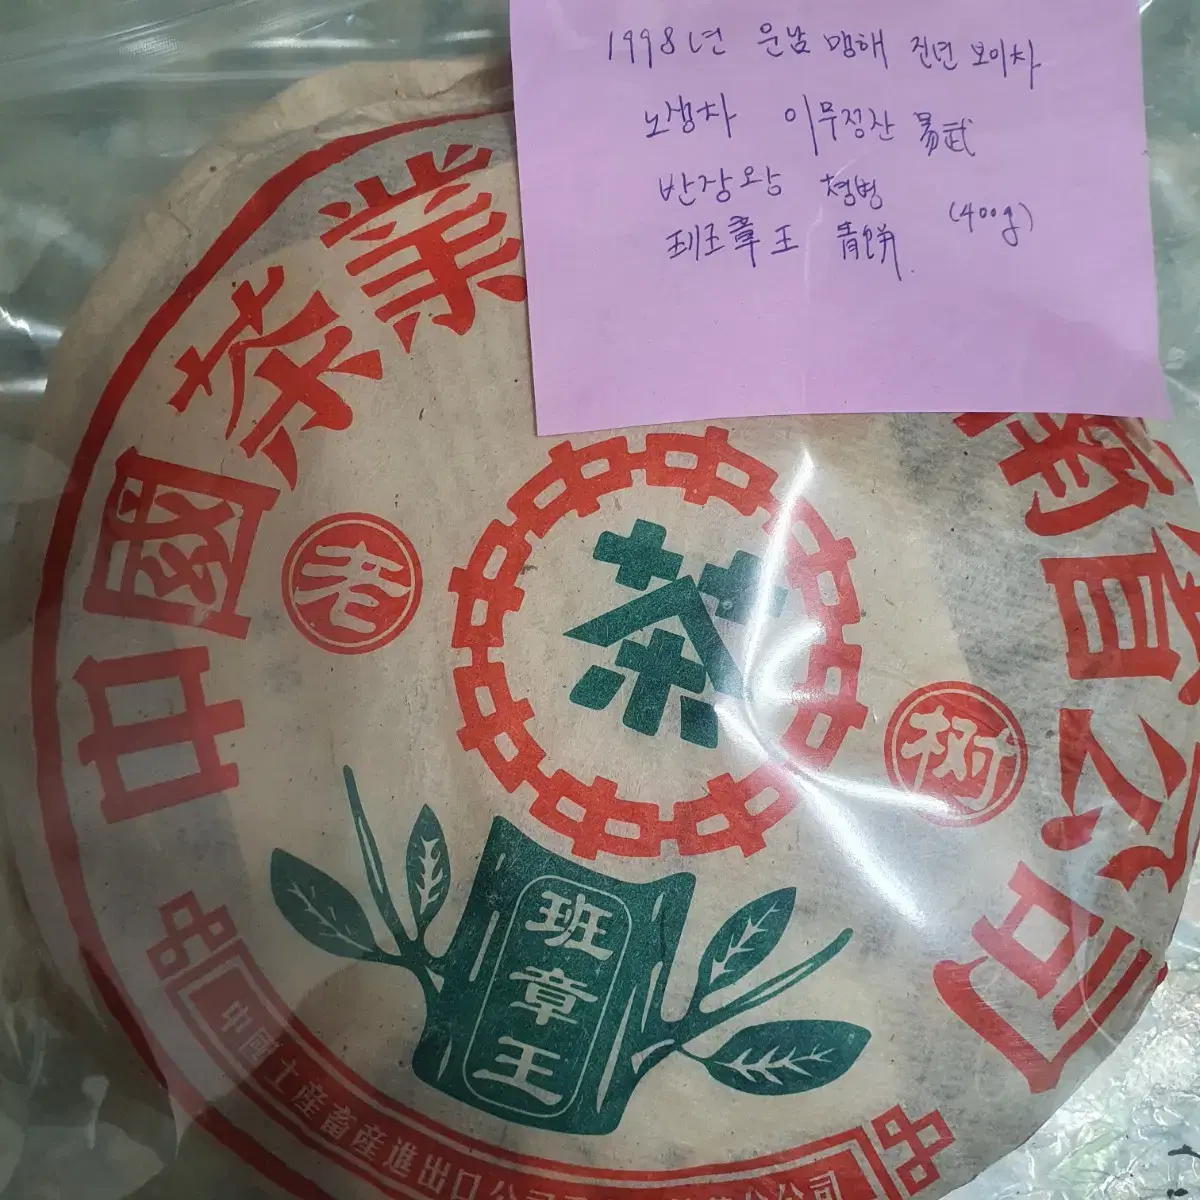 1998년 운남 맹해 진년 보이차
노생차 이무정산 易武
반장왕 청병
班章王 靑餠 (400g)
中國茶業
南省公司
老
茶
树
班章王
中國土産畜産進出口公司
公司